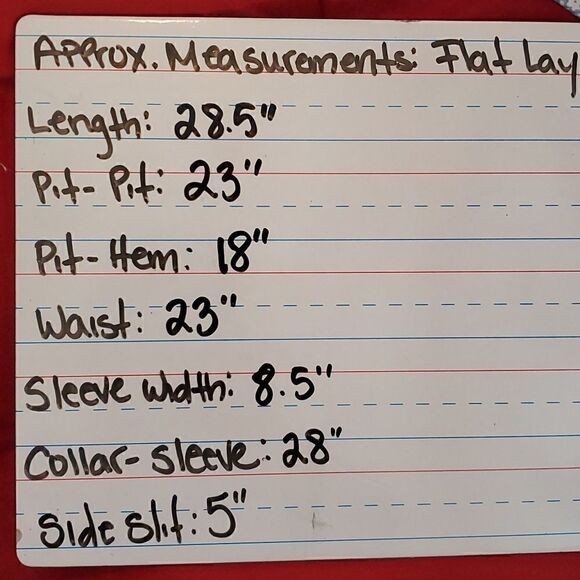 Approx. Measurements: Flat Lay
Length: 28.5"
Pit-Pit: 23"
Pit-Hem: 18"
Waist: 23"
Sleeve width: 8.5"
Collar-sleeve: 28"
Side slit: 5"